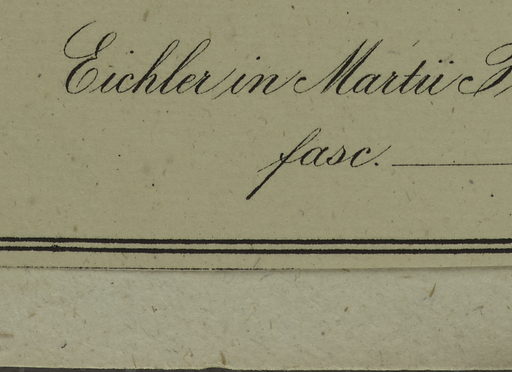 Eichler in Martii
fasc.